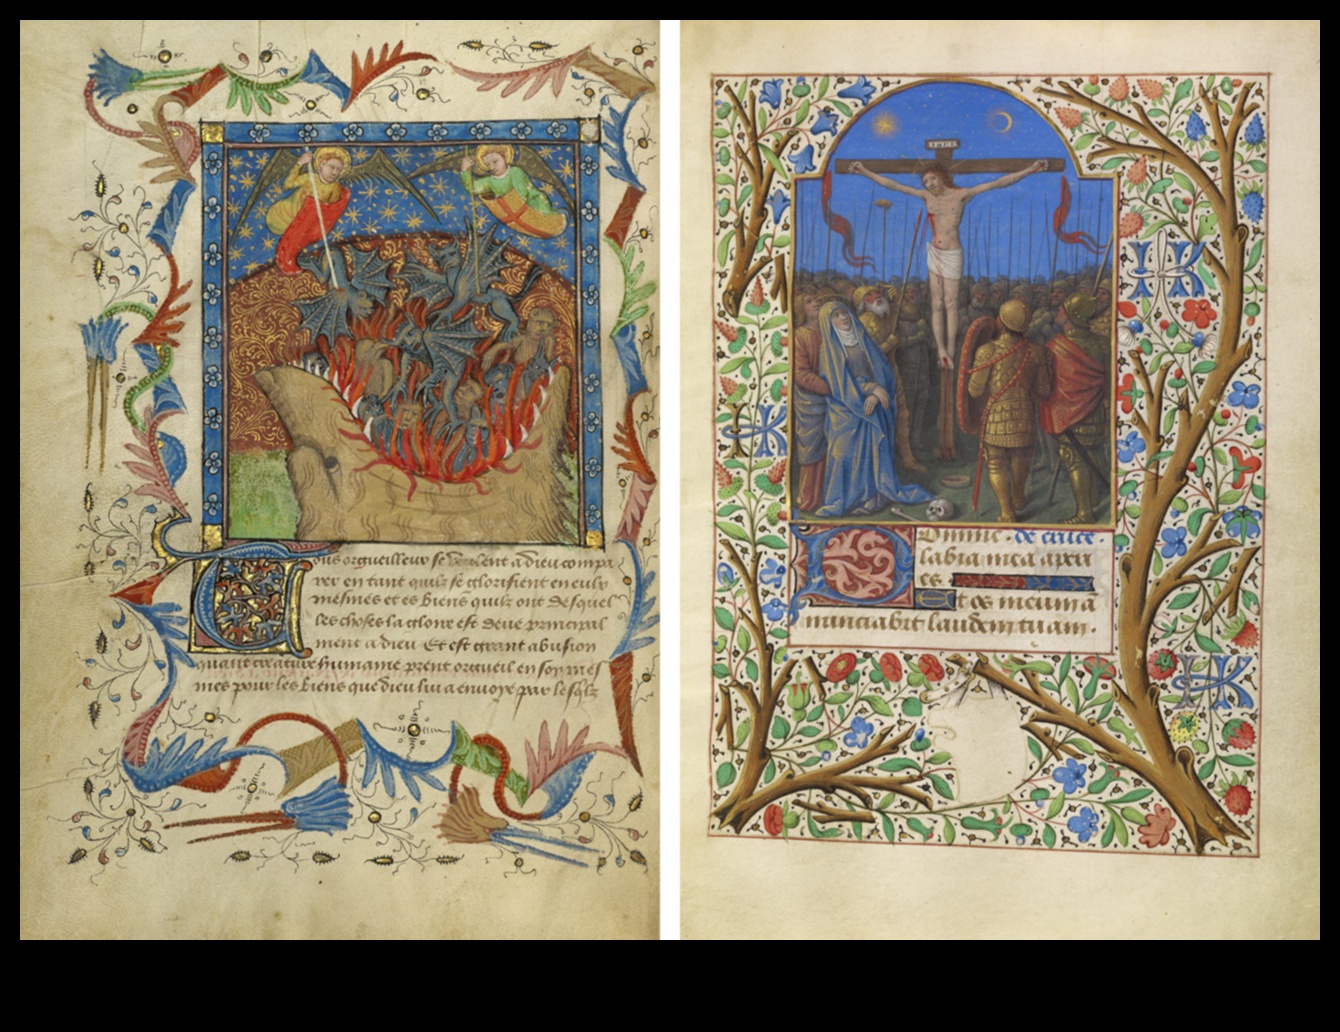 ous orgueilleux se veulent a dieu compa
rer en tant quilz se glorifient en eulx
mesmes et es biens quilz ont desquel
les choses la gloire est deue principal
ment a dieu Et est grant abusion
quant creature humaine prent orgueil en soy mes
mes pour les biens que dieu lui a envoye par le filz
INRI
Domine. de cruce
labia mea aperi
es
Et os meum a
nunciabit laudem tuam.